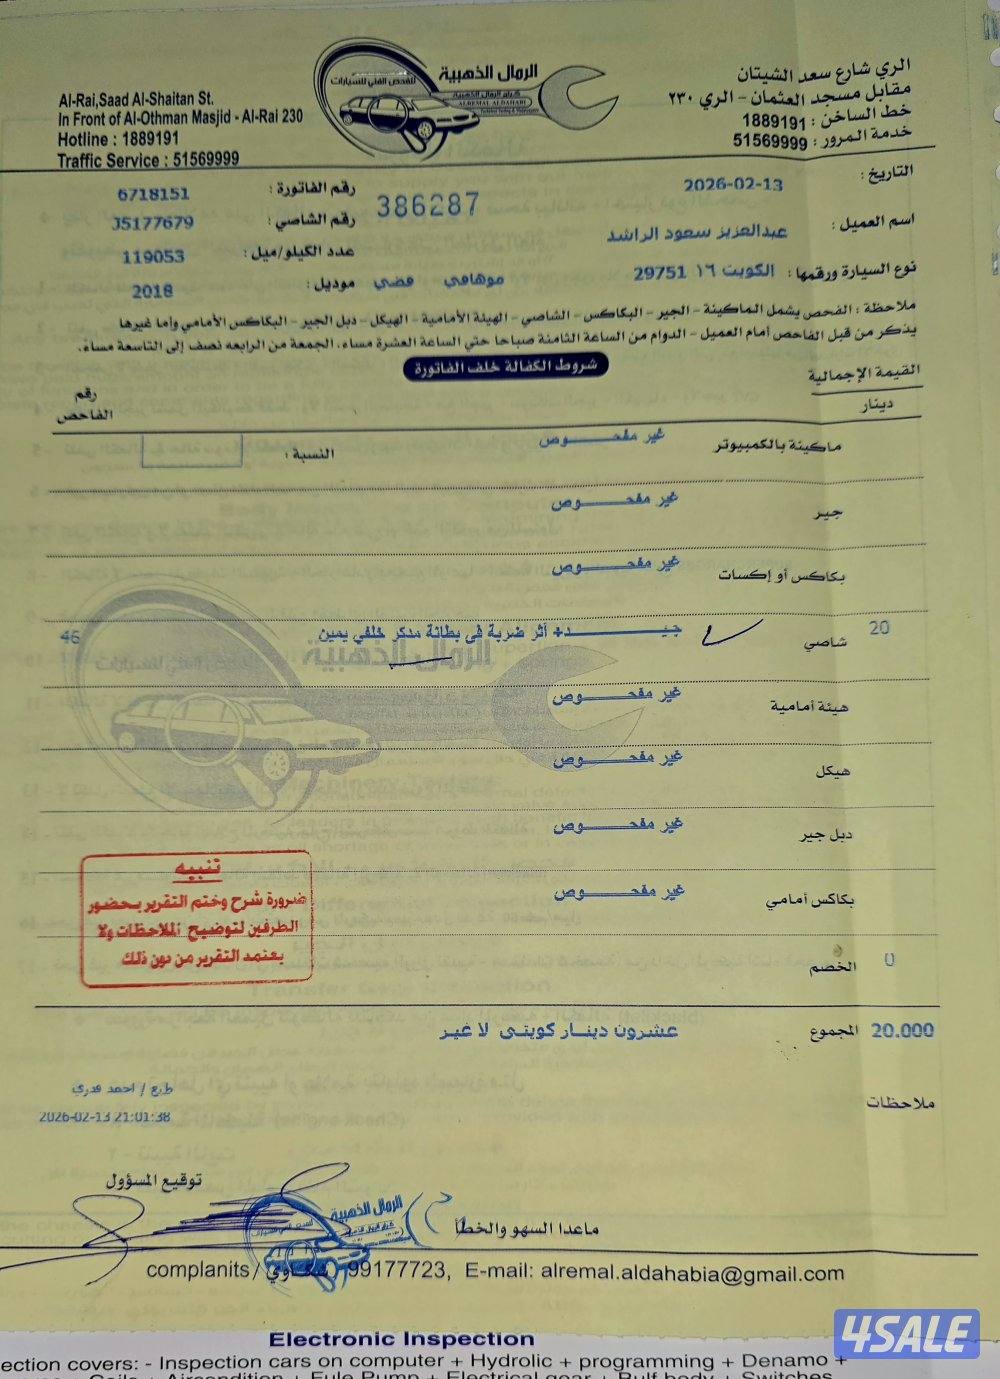 الرمال الذهبية
للفحص الفني للسيارات
كراج الرمال الذهبية
ALREMAL ALDAHABI
Al-Rai,Saad Al-Shaitan St.
In Front of Al-Othman Masjid - Al-Rai 230
Hotline : 1889191
Traffic Service : 51569999
الري شارع سعد الشيتان
مقابل مسجد العثمان - الري ٢٣٠
خط الساخن : 1889191
خدمة المرور : 51569999
التاريخ : 2026-02-13
رقم الفاتورة : 6718151
386287
اسم العميل : عبدالعزيز سعود الراشد
رقم الشاصي : J5177679
نوع السيارة ورقمها : الكويت ١٦ 29751 موهافي فضي
عدد الكيلو/ميل : 119053
موديل : 2018
ملاحظة : الفحص يشمل الماكينة - الجير - البكاكس - الشاصي - الهيئة الأمامية - الهيكل - دبل الجير - البكاكس الأمامي وأما غيرها
يذكر من قبل الفاحص أمام العميل - الدوام من الساعة الثامنة صباحا حتي الساعة العشرة مساء، الجمعة من الرابعه نصف إلى التاسعة مساء.
شروط الكفالة خلف الفاتورة
القيمة الإجمالية
دينار
رقم الفاحص
ماكينة بالكمبيوتر غير مفحـــــوص النسبة :
جير غير مفحـــــوص
بكاكس أو إكسات غير مفحـــــوص
20 شاصي جيـــــــد+ أثر ضربة فى بطانة مدكر خلفي يمين 46
هيئة أمامية غير مفحـــــوص
هيكل غير مفحـــــوص
دبل جير غير مفحـــــوص
بكاكس أمامي غير مفحـــــوص
تنبيه
ضرورة شرح وختم التقرير بحضور
الطرفين لتوضيح الملاحظات ولا
يعتمد التقرير من دون ذلك
0 الخصم
20.000 المجموع عشرون دينـار كويتى لا غير
ملاحظات
طبع / احمد قدري
2026-02-13 21:01:38
توقيع المسؤول
الرمال الذهبية
ماعدا السهو والخطأ
complanits / شكاوي 99177723, E-mail: alremal.aldahabia@gmail.com
Electronic Inspection
ection covers: - Inspection cars on computer + Hydrolic + programming + Denamo +
4SALE